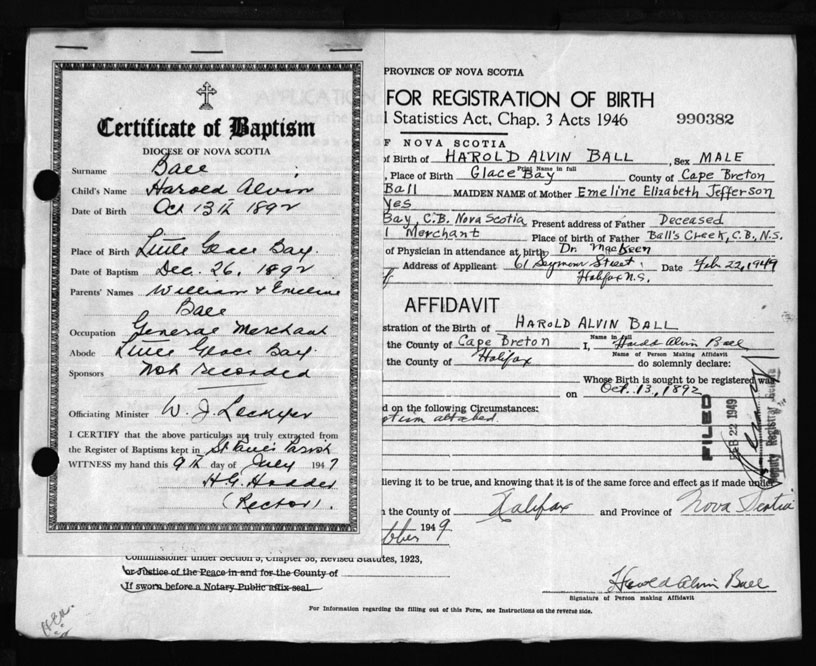 Certificate of Baptism
DIOCESE OF NOVA SCOTIA
Surname Ball
Child's Name Harold Alvin
Date of Birth Oct 13th 1892
Place of Birth Little Glace Bay.
Date of Baptism Dec. 26, 1892
Parents' Names William & Emeline
Ball
Occupation General Merchant
Abode Little Glace Bay.
Sponsors Not Recorded
Officiating Minister W. J. Lockyer
I CERTIFY that the above particulars are truly extracted from
the Register of Baptisms kept in Parish
WITNESS my hand this 9th day of July 1947
(Rector).
PROVINCE OF NOVA SCOTIA
FOR REGISTRATION OF BIRTH
Statistics Act, Chap. 3 Acts 1946 990382
F NOVA SCOTIA
of Birth of HAROLD ALVIN BALL, Sex MALE
Print Name in full
, Place of Birth Glace Bay County of Cape Breton
Ball MAIDEN NAME of Mother Emeline Elizabeth Jefferson
Yes
Bay, C.B. Nova Scotia Present address of Father Deceased
l Merchant Place of birth of Father Ball's Creek, C.B., N.S.
of Physician in attendance at birth Dr. MacKeen
Address of Applicant 61 Seymour Street, Date Feb 22, 1949
Halifax N.S.
AFFIDAVIT
stration of the Birth of HAROLD ALVIN BALL
Name in full
the County of Cape Breton I, Harold Alvin Ball
Name of Person Making Affidavit
the County of Halifax do solemnly declare:
Whose Birth is sought to be registered was
on Oct. 13, 1892
d on the following Circumstances:
ptism attached.
FILED
FEB 22 1949
Deputy Registrar
lieving it to be true, and knowing that it is of the same force and effect as if made under
n the County of Halifax and Province of Nova Scotia
1949
Commissioner under Section 5, Chapter 38, Revised Statutes, 1923,
or Justice of the Peace in and for the County of
If sworn before a Notary Public affix seal
Harold Alvin Ball
Signature of Person making Affidavit
For Information regarding the filling out of this Form, see Instructions on the reverse side.